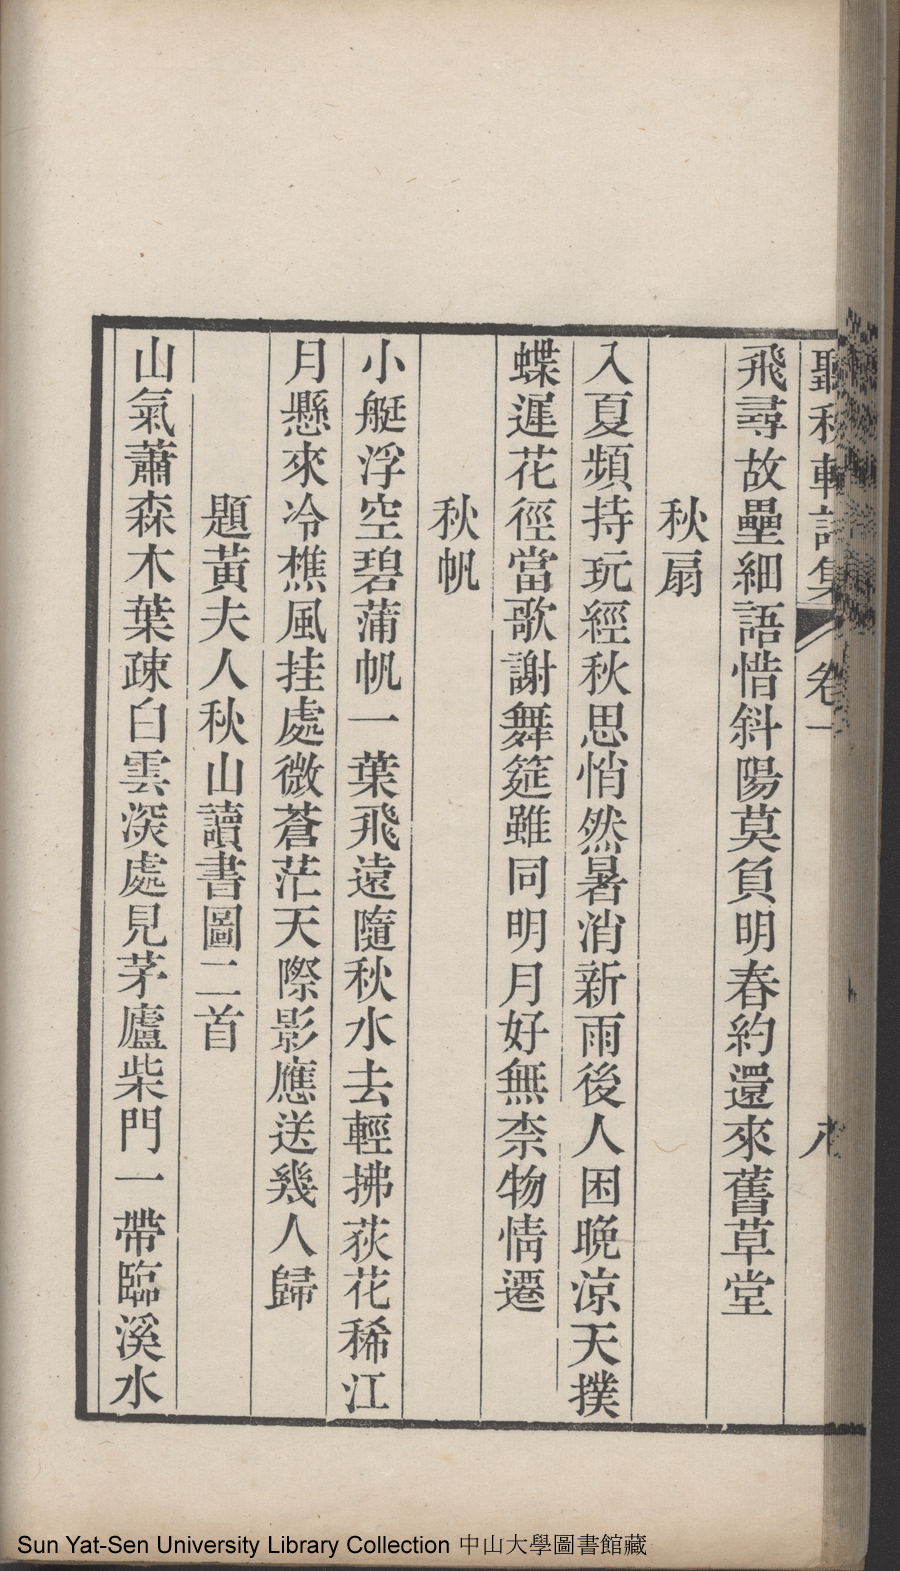 聽秋軒詩集 卷一 八
飛尋故壘細語惜斜陽莫負明春約還來舊草堂
秋扇
入夏頻持玩經秋思悄然暑消新雨後人困晚凉天撲
蝶遲花徑當歌謝舞筵雖同明月好無柰物情遷
秋帆
小艇浮空碧蒲帆一葉飛遠隨秋水去輕拂荻花稀江
月懸來冷樵風挂處微蒼茫天際影應送幾人歸
題黃夫人秋山讀書圖二首
山氣蕭森木葉疎白雲深處見茅廬柴門一帶臨溪水
Sun Yat-Sen University Library Collection 中山大學圖書館藏